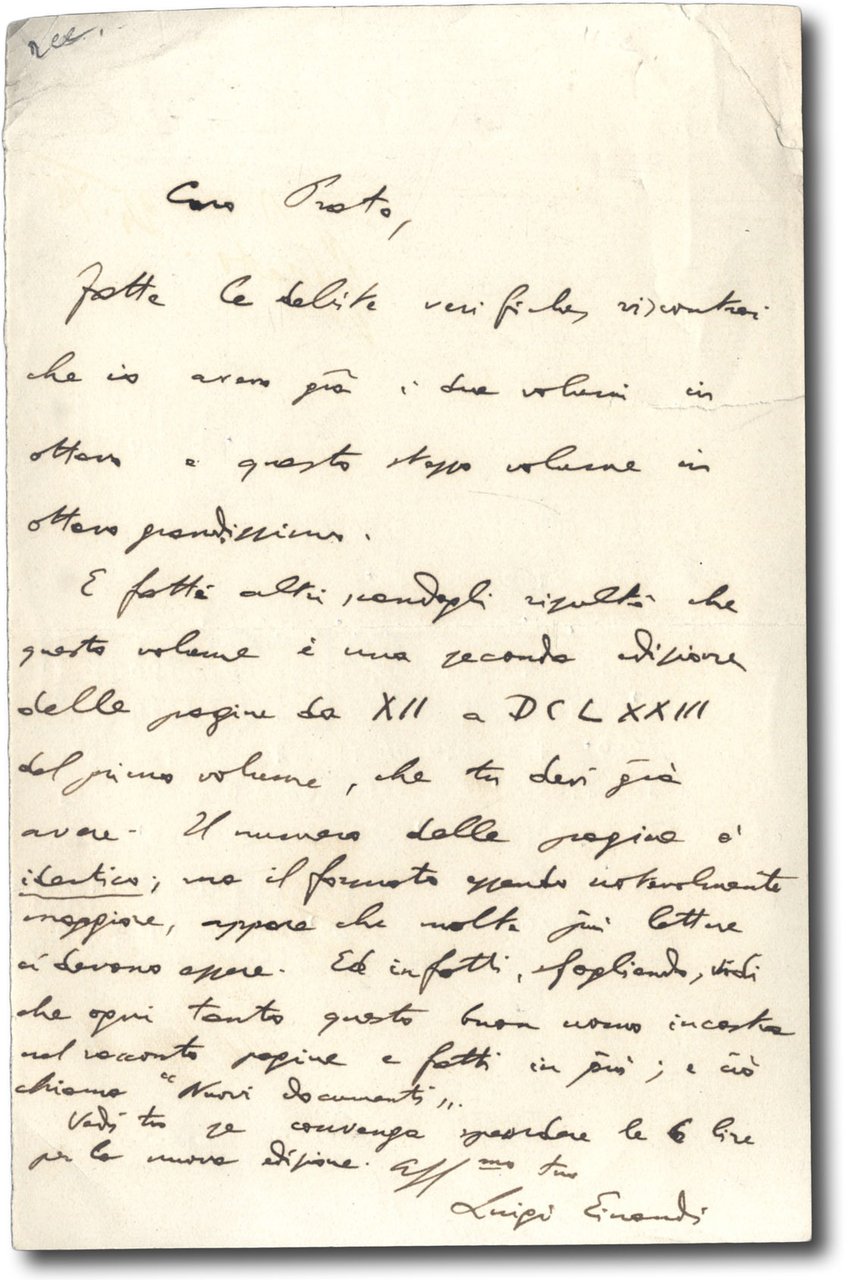 Caro Prato,
Fatte le debite verifiche, riscontrai
che io avevo già i due volumi in
ottavo e questo stesso volume in
ottavo grandissimo.
E fatti altri scandagli risultò che
questo volume è una seconda edizione
delle pagine da XII a DCLXXIII
del primo volume, che tu devi già
avere. Il numero delle pagine è
identico; ma il formato essendo notevolmente
maggiore, appare che molte più lettere
ci devono essere. Ed infatti, sfogliando, vidi
che ogni tanto questo buon uomo incastra
nel racconto pagine e fatti in più; e ciò
chiama "Nuovi documenti".
Vedi tu se convenga spendere le 6 lire
per la nuova edizione. Aff.mo tuo
Luigi Einaudi